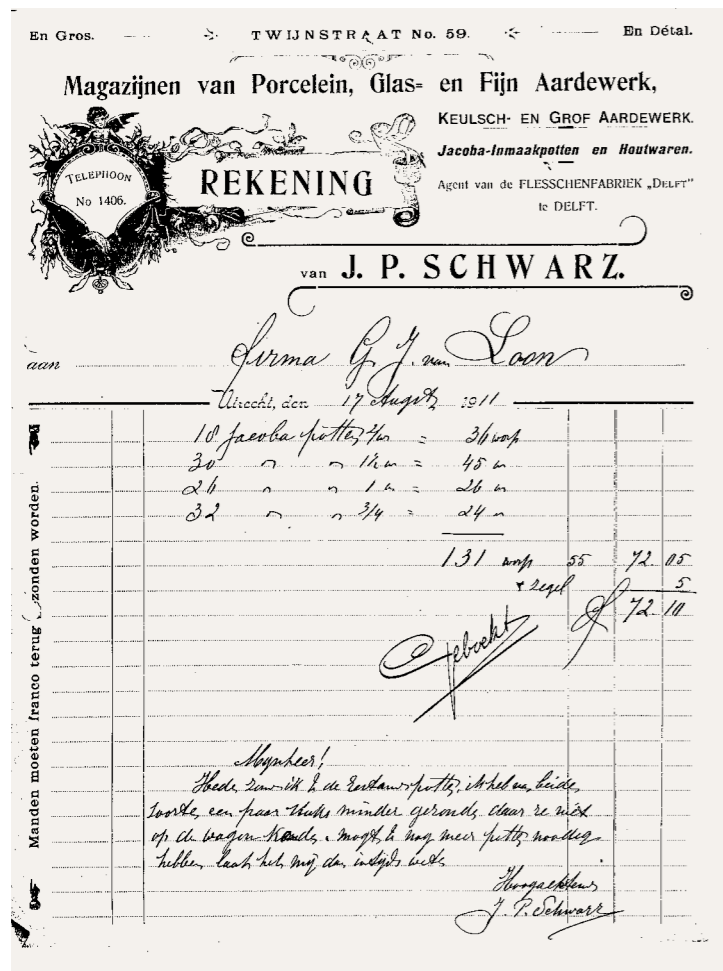 En Gros.
TWIJNSTRAAT No. 59.
En Détal.
Magazijnen van Porcelein, Glas= en Fijn Aardewerk,
KEULSCH- EN GROF AARDEWERK.
Jacoba-Inmaakpotten en Houtwaren.
Agent van de FLESSCHENFABRIEK „DELFT"
te DELFT.
TELEPHOON
No 1406.
REKENING
van J. P. SCHWARZ.
aan Firma G. J. van Loon
Utrecht, den 17 August 1911
18 Jacoba potten 2/m = 36 worp
30 " " 1½ " = 45 "
26 " " 1 " = 26 "
32 " " 3/4 = 24 "
131 worp 55 72.05
+ zegel 5
72.10
Geboekt
Manden moeten franco terug gezonden worden.
Mynheer!
Heden zond ik U de potten, ik heb van beide
soorten een paar stuks minder gezonden daar ze niet
op de wagen konden. mogt U nog meer potten noodig
hebben laat het mij dan intijds weten
Hoogachtend
J. P. Schwarz